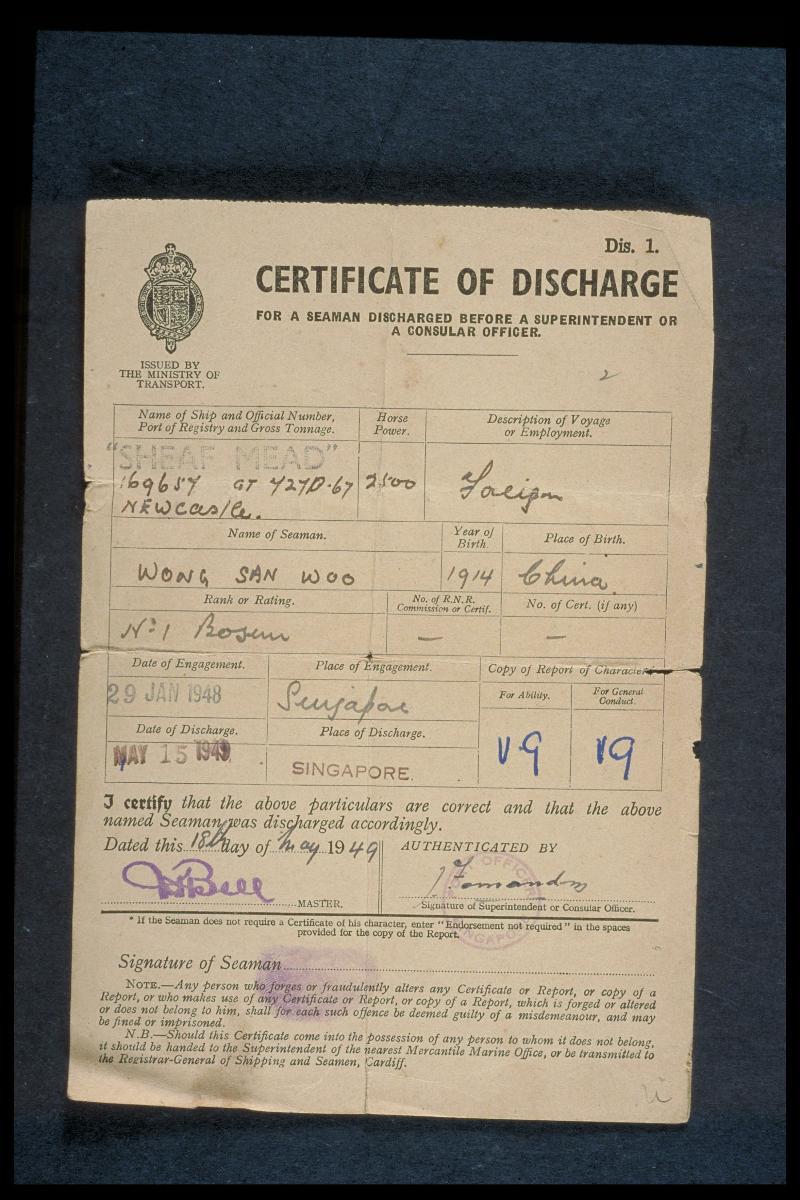 Dis. 1.
CERTIFICATE OF DISCHARGE
FOR A SEAMAN DISCHARGED BEFORE A SUPERINTENDENT OR
A CONSULAR OFFICER.
ISSUED BY
THE MINISTRY OF
TRANSPORT.
2
Name of Ship and Official Number,
Port of Registry and Gross Tonnage.
Horse
Power.
Description of Voyage
or Employment.
"SHEAF MEAD"
169657 GT 4270.67
NEWcastle.
2500
Foreign
Name of Seaman.
Year of
Birth.
Place of Birth.
WONG SAN WOO
1914
China
Rank or Rating.
No. of R.N.R.
Commission or Certif.
No. of Cert. (if any)
No 1 Bosun
—
—
Date of Engagement.
Place of Engagement.
Copy of Report of Character
29 JAN 1948
Singapore
For Ability.
For General
Conduct.
Date of Discharge.
Place of Discharge.
V.G
VG
MAY 15 1949
SINGAPORE.
I certify that the above particulars are correct and that the above
named Seaman was discharged accordingly.
Dated this 18th day of May 1949
AUTHENTICATED BY
Bell
MASTER.
OFFICE
SINGAPORE
Signature of Superintendent or Consular Officer.
* If the Seaman does not require a Certificate of his character, enter "Endorsement not required" in the spaces
provided for the copy of the Report.
Signature of Seaman
NOTE.—Any person who forges or fraudulently alters any Certificate or Report, or copy of a
Report, or who makes use of any Certificate or Report, or copy of a Report, which is forged or altered
or does not belong to him, shall for each such offence be deemed guilty of a misdemeanour, and may
be fined or imprisoned.
N.B.—Should this Certificate come into the possession of any person to whom it does not belong,
it should be handed to the Superintendent of the nearest Mercantile Marine Office, or be transmitted to
the Registrar-General of Shipping and Seamen, Cardiff.